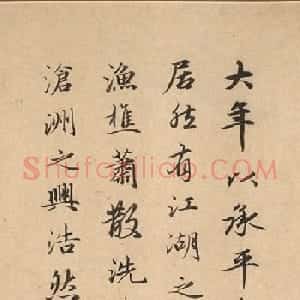 大年以承平
居然有江湖之
漁樵蕭散洗
滄洲之興浩然
Shufaziliao.com